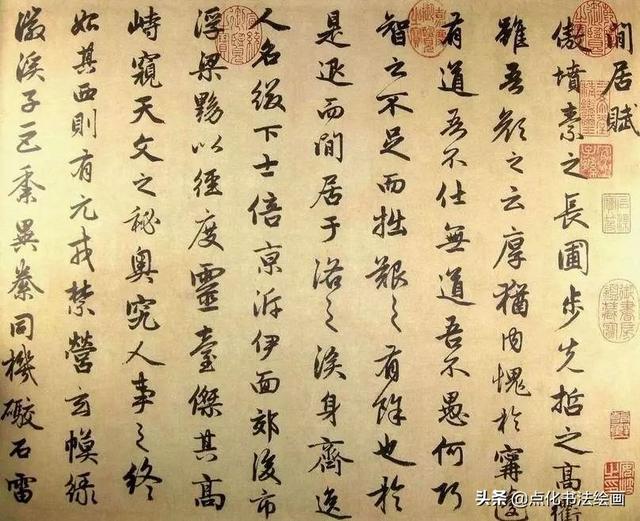 閒居賦
傲墳素之長圃步先哲之高衢
雖吾顏之云厚猶內愧於甯蘧
有道吾不仕無道吾不愚何巧
智之不足而拙艱之有餘也於
是退而閒居于洛之涘身齊逸
人名綴下士倍京泝伊面郊後市
浮梁黝以徑度靈臺傑其高
峙窺天文之秘奧究人事之終
始其西則有元戎禁營玄幙綠
徽溪子巨黍異絭同機礮石雷
头条 @点化书法绘画